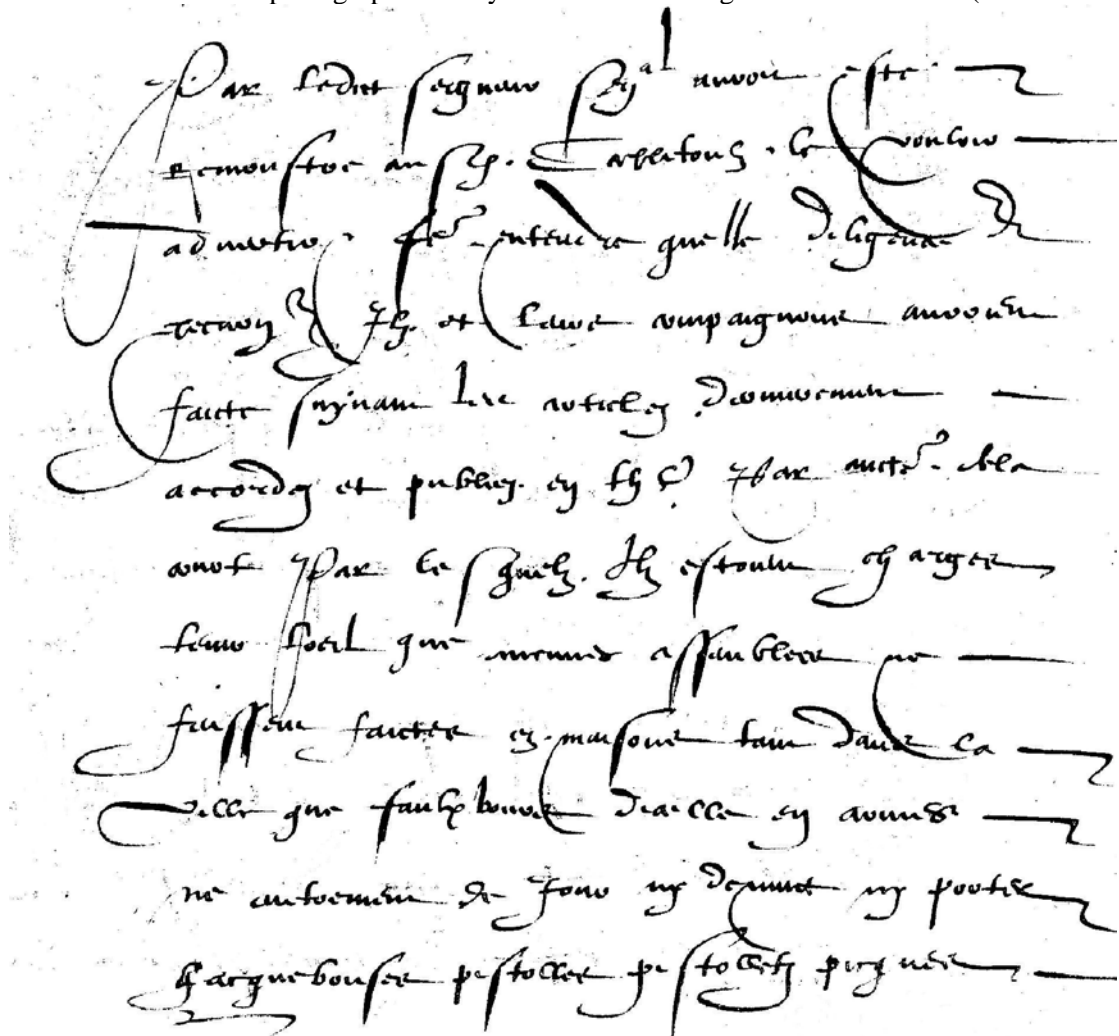 Par ledict seigneur sen^al auroit este
remonstre aus Cappitoulz. le vouloir
advertir. fe^r. entendre quelle diligence
Ilz. et leurs compaignons auroient
faicte suyvant les articles dernierement
accordez et publiez. en Par aucte^r. de la
court Par lesquelz. Ilz estoient charges
tenir loeil que aucunes assanblees ne
fussent faictes ez. maisons tant dans la
ville que faulxbours dicelle en armes
ne autrement de Jour ny de nuict ny porter
hacquebouses pistolles pistolletz picques